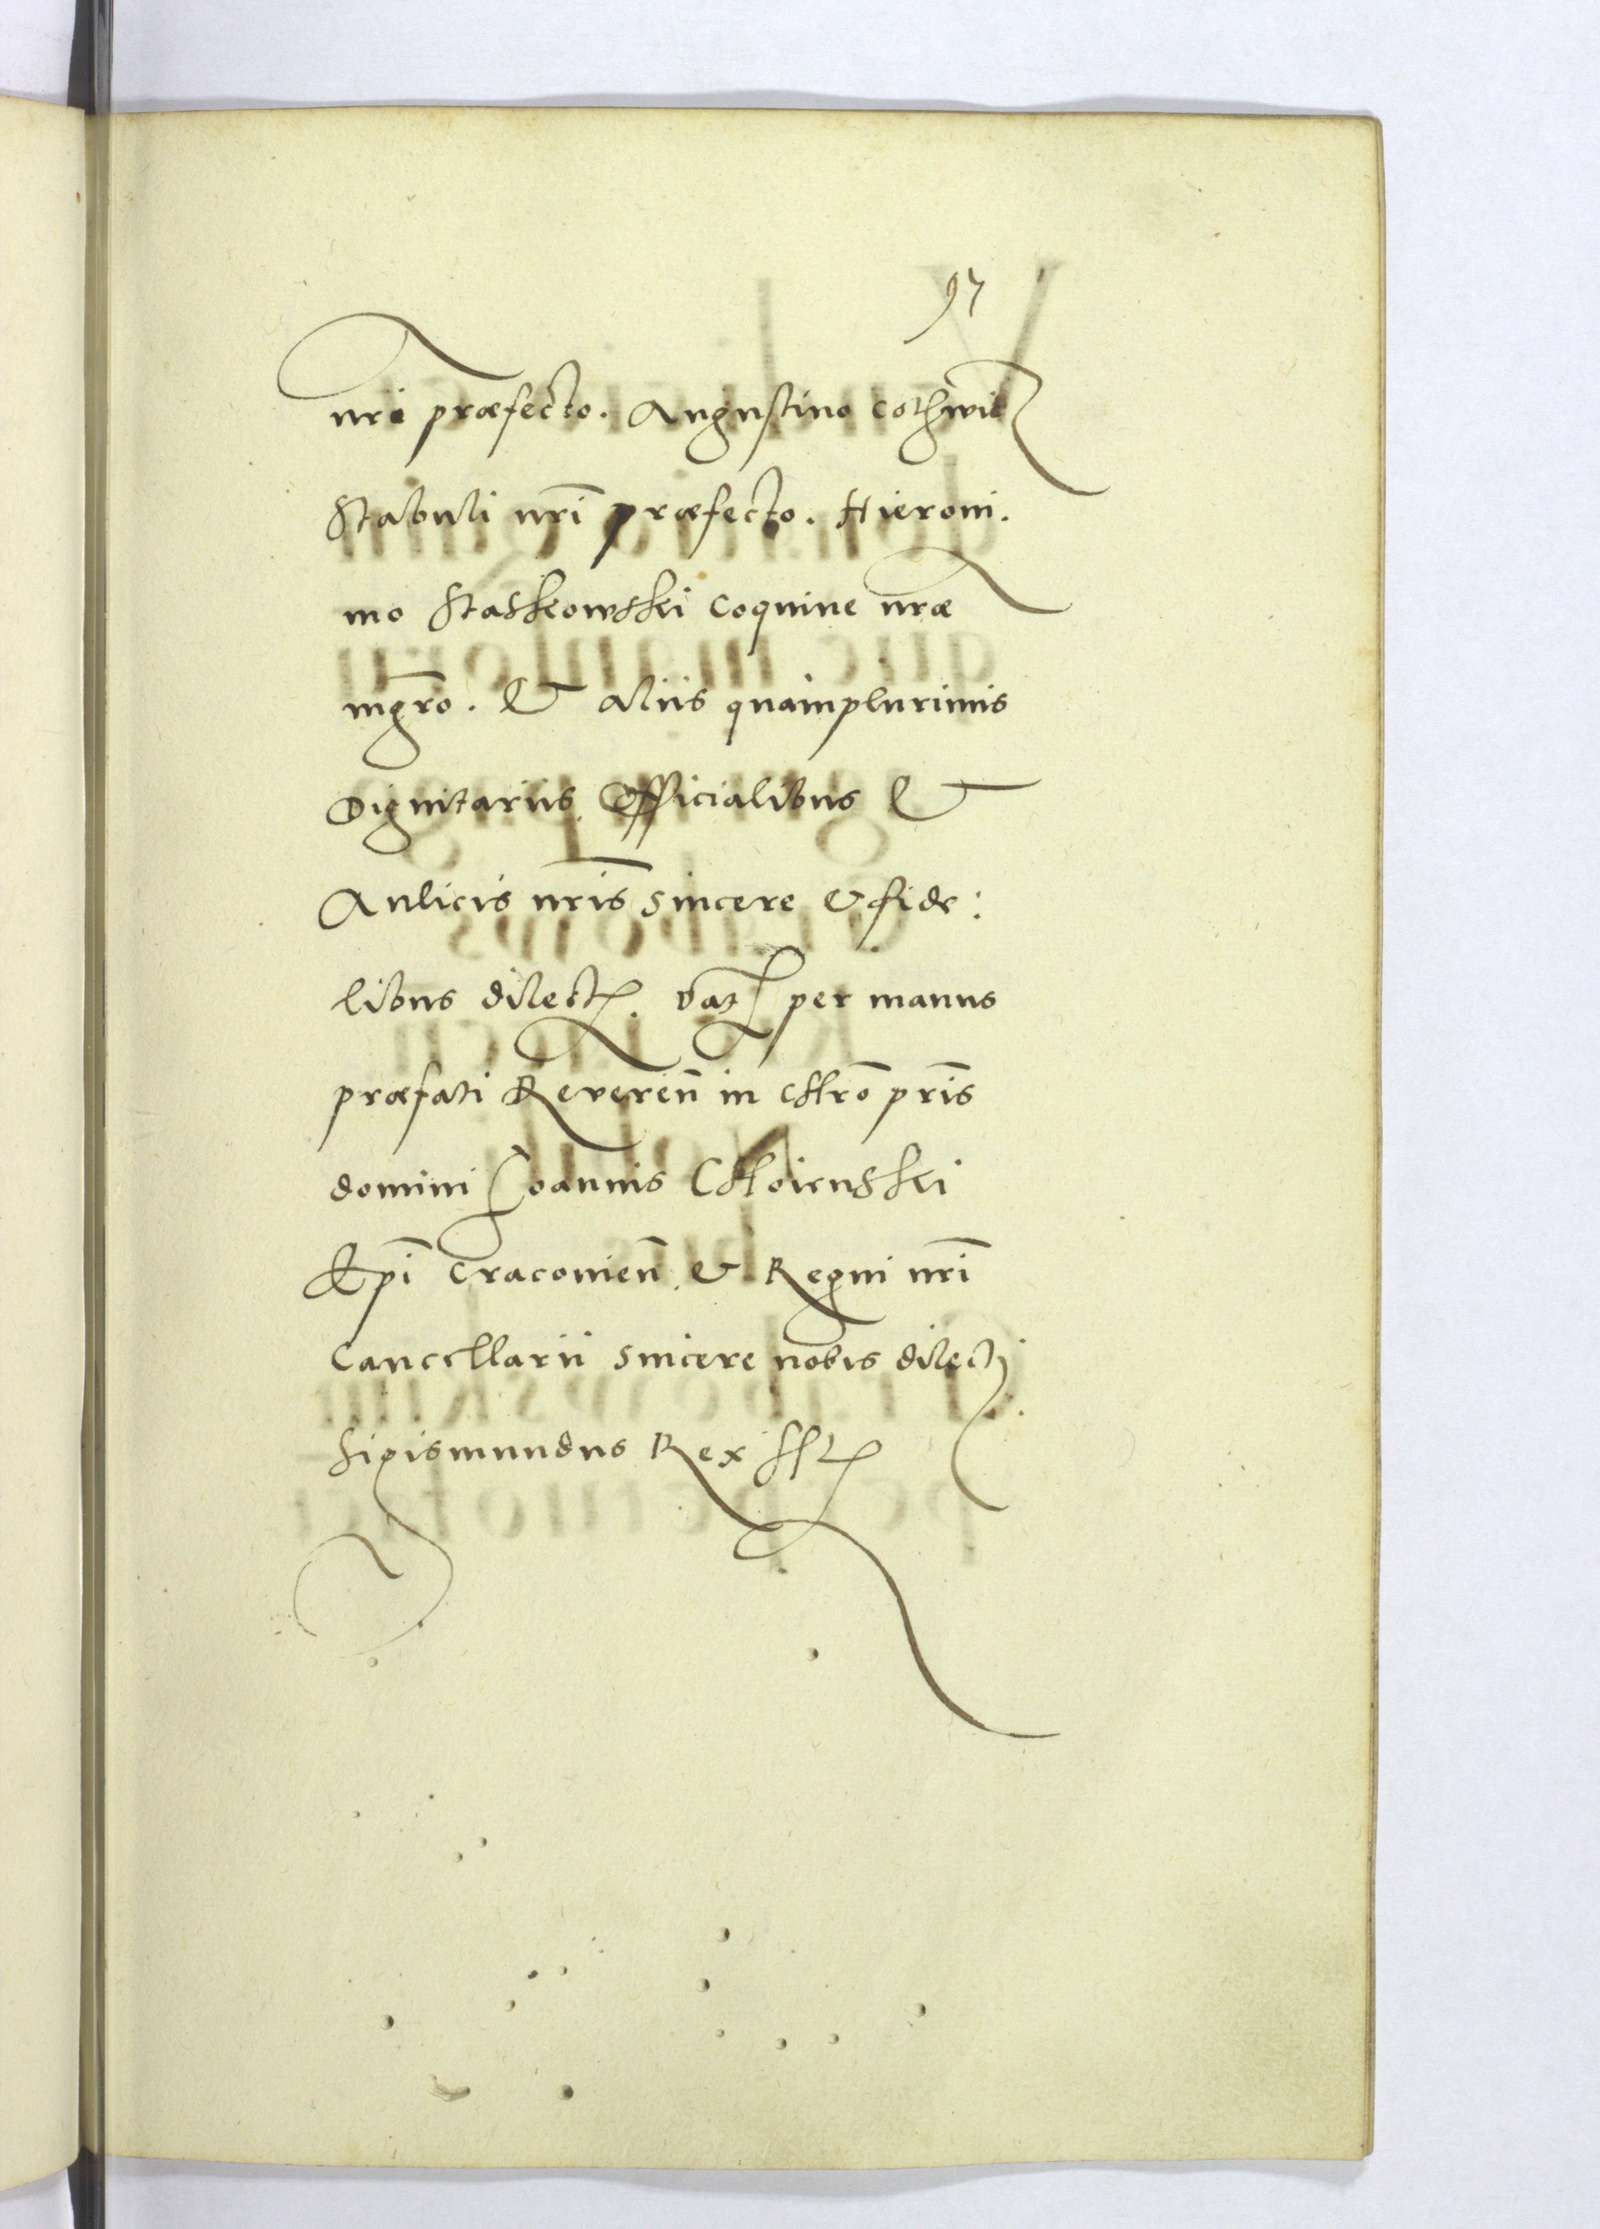 97
nri præfecto. Augustino Cothwicz
Stabuli nr̄i præfecto. Hieroni.
mo Staskowski Coquine nræ
mgr̄o. Et aliis quamplurimis
Dignitariis Officialibus Et
Aulicis nr̄is sincere & fide:
libus dilect. Dat per manus
præfati Reveren̄ in Chr̄o pr̄is
domini Joannis Choienski
Ep̄i Cracovien̄ & Regni nr̄i
Cancellarii sincere nobis dilecti
Sigismundus Rex sst